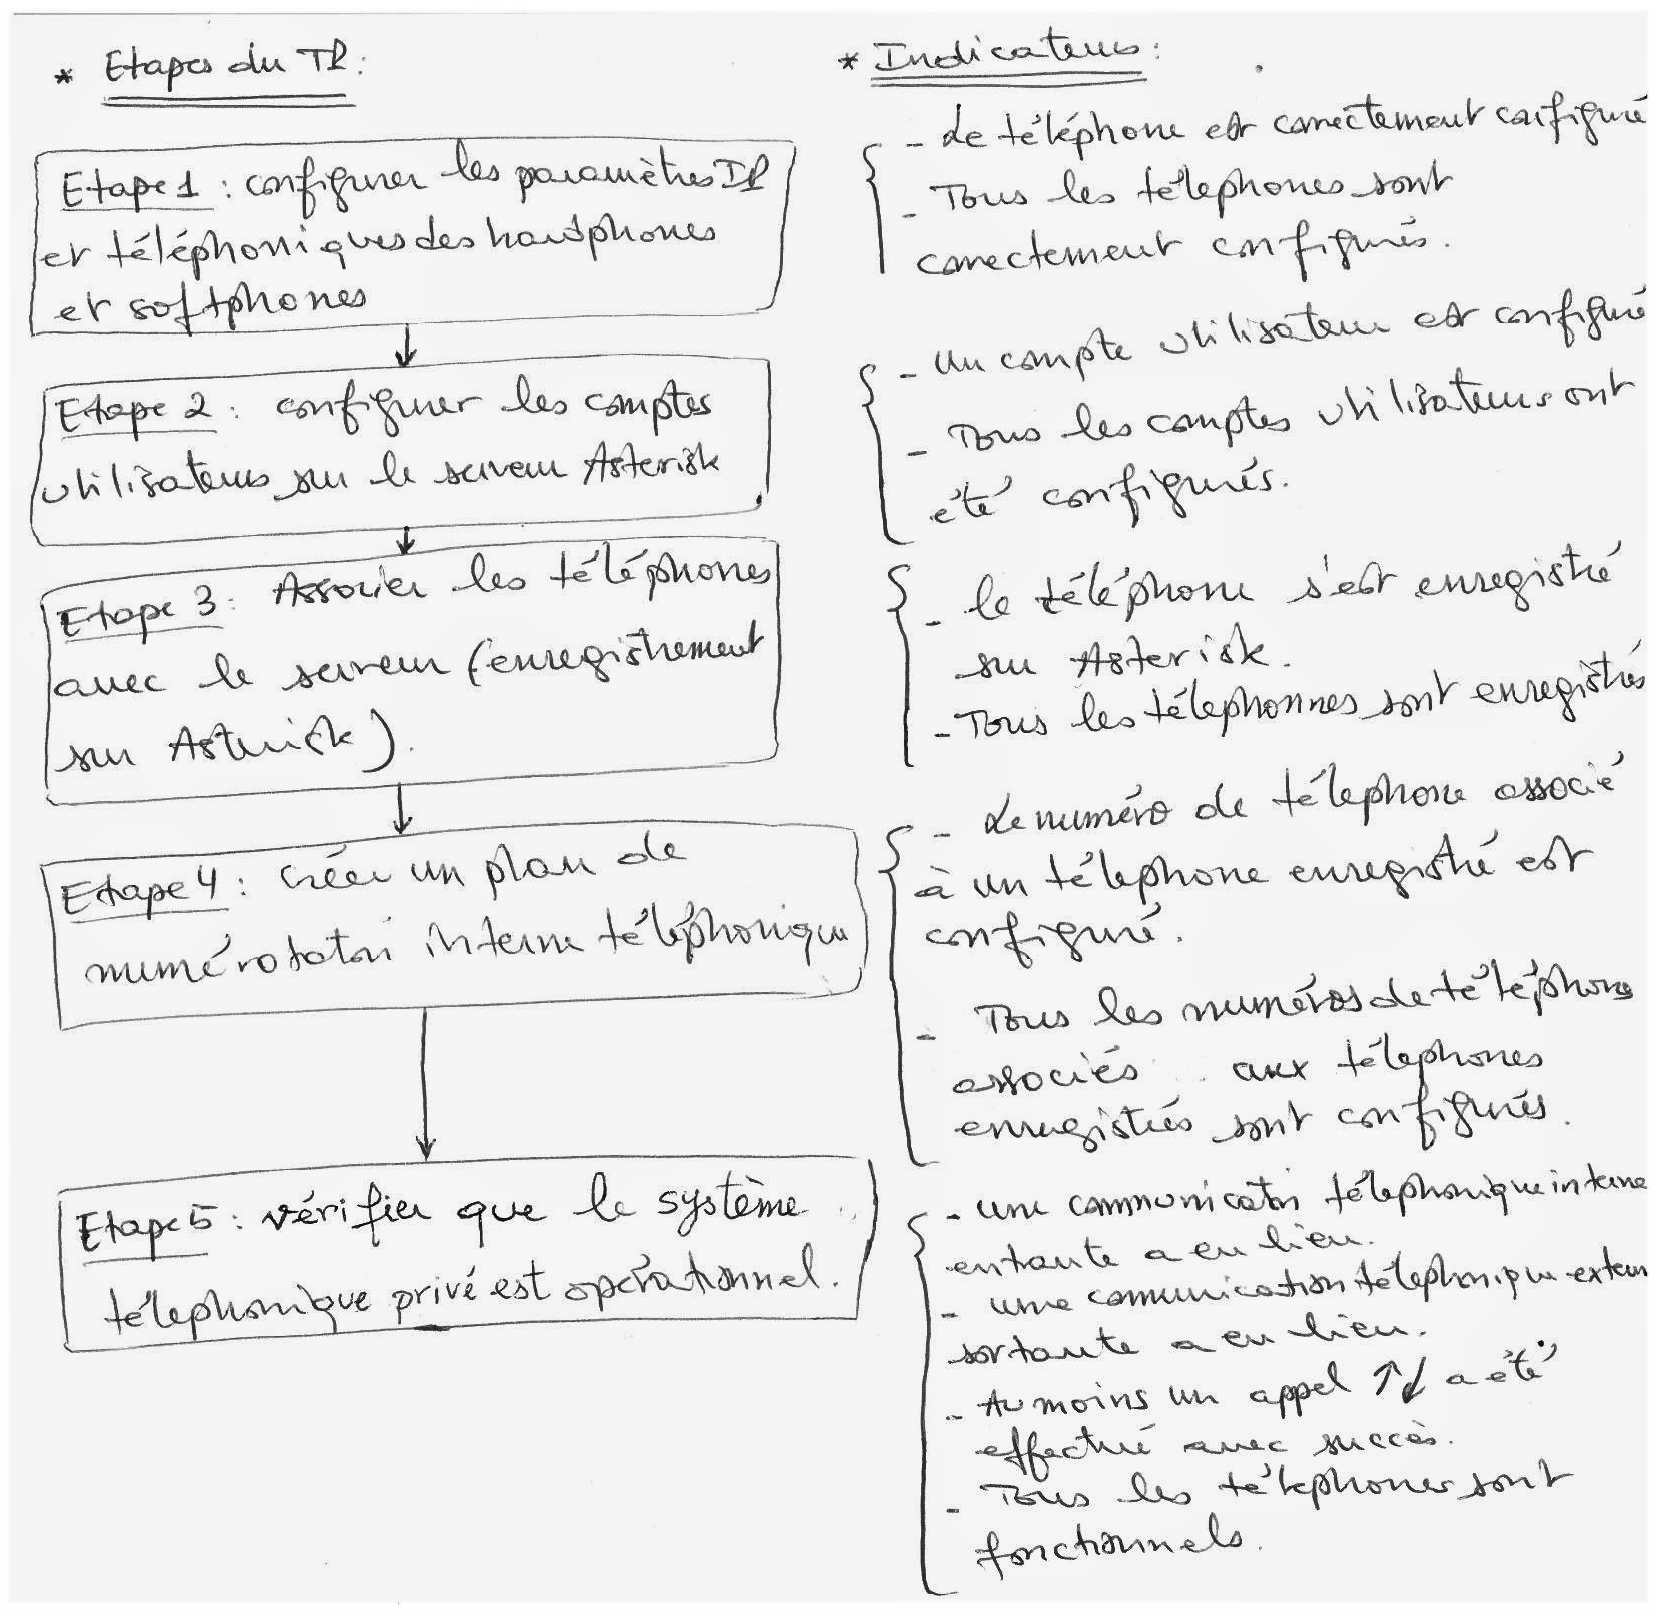 * Etapes du TP :
Etape 1 : configurer les paramètres IP
et téléphoniques des hardphones
et softphones
Etape 2 : configurer les comptes
utilisateurs sur le serveur Asterisk
Etape 3 : Associer les téléphones
avec le serveur (enregistrement
sur Asterisk).
Etape 4 : créer un plan de
numérotaton interne téléphonique
Etape 5 : vérifier que le système
télephonique privé est opérationnel.
* Indicateurs :
- Le téléphone est correctement configuré
- Tous les télephones sont
correctement configurés.
- Un compte utilisateur est configuré
- Tous les comptes utilisateurs ont
été configurés.
- le téléphone s'est enregistré
sur Asterisk.
- Tous les télephonnes sont enregistrés
- Le numéro de télephone associé
à un télephone enregistré est
configuré.
- Tous les numéros de téléphone
associés aux télephones
enregistrés sont configurés.
- une communicaton télephonique interne
entrante a eu lieu.
- une communication télephonique extern
sortante a eu lieu.
- Au moins un appel ↑↓ a été
effectué avec succès.
- Tous les télephones sont
fonctionnels.